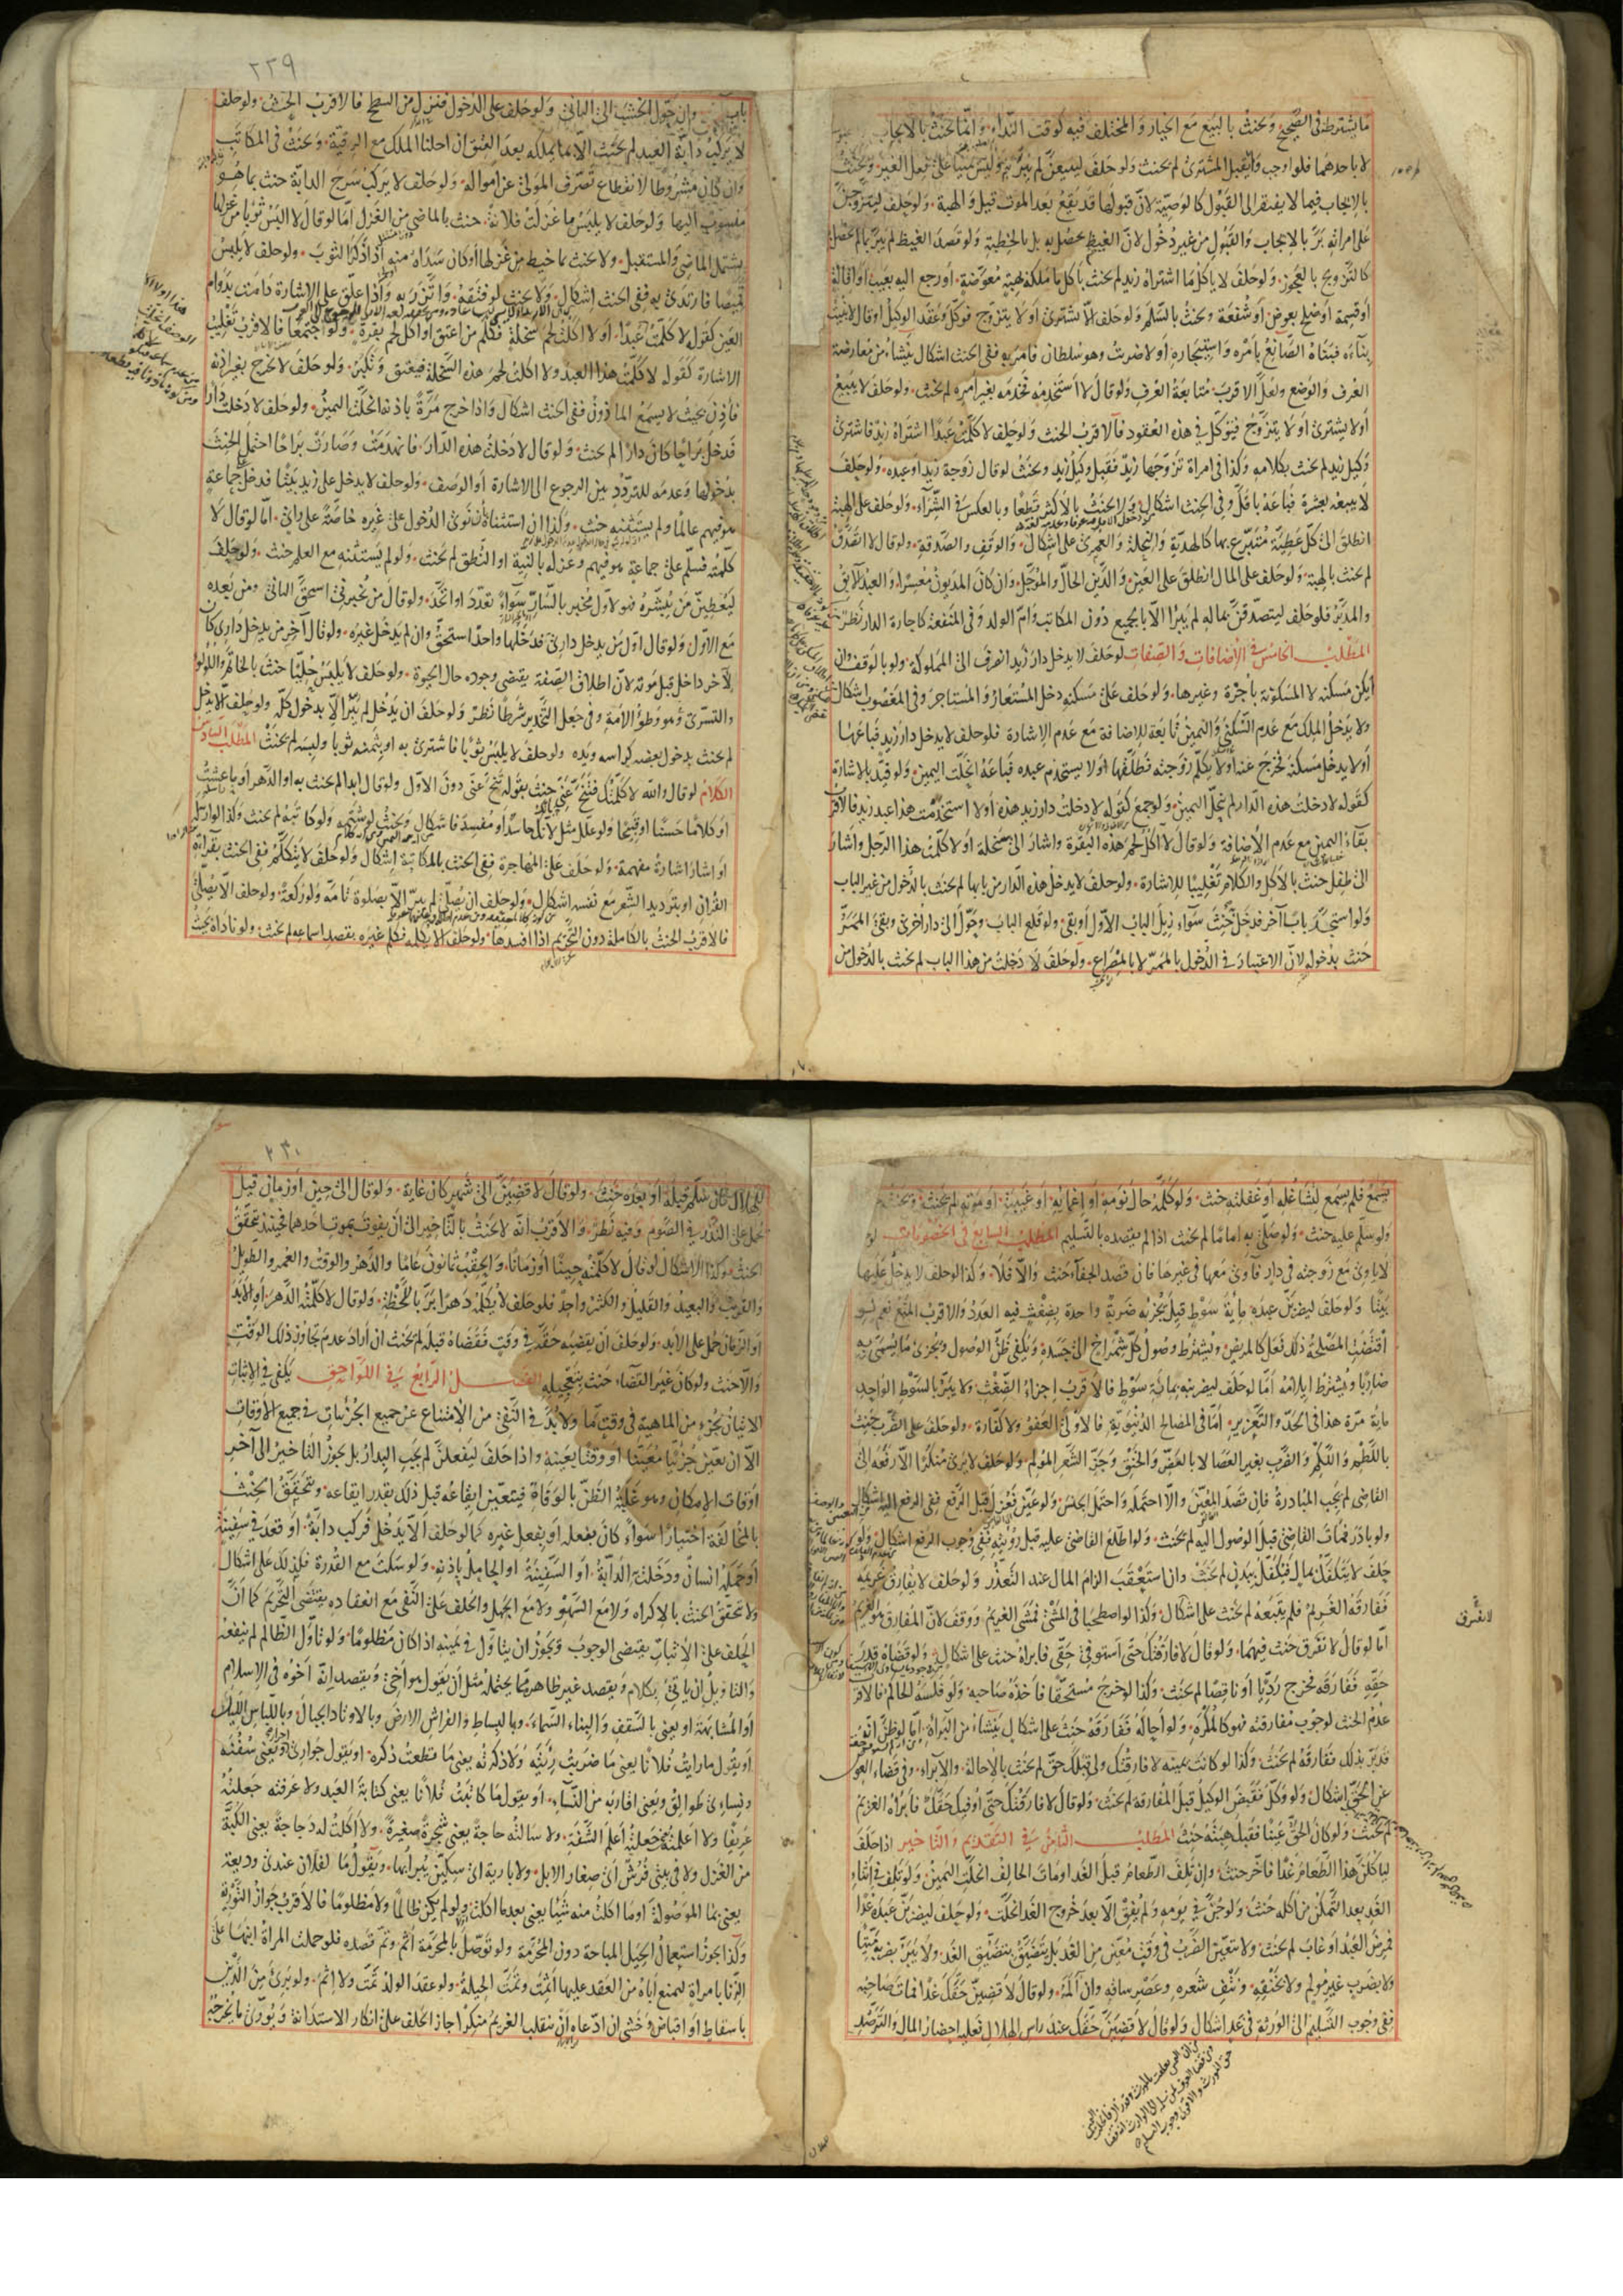 ما يشترط فى الصحيح ويحنث بالبيع مع الخيار والمختلف فيه كوقت النداء وانما يحنث بالايجاب
لا باحدهما فلو اوجب ولم يقبل المشترى لم يحنث ولو حلف ليبيعن لم يبر وليس يمينا على فعل الغير ويحنث
بالايجاب فيما لا يفتقر الى القبول كالوصية لان قبولها قد يقع بعد الموت قيل والهبة ولو حلف ليتزوجن
على امراته بر بالايجاب والقبول من غير دخول لان الغيظ يحصل به بل بالخطبة ولو قصد الغيظ لم يبر بما لم يحصل
كالتزويج بالعجوز ولو حلف لا ياكل ما اشتراه زيد لم يحنث باكل ما ملكه بهبة معوضة او رجع اليه بعيب او اقالة
او قسمة او صلح بعوض او شفعة ويحنث بالسلم ولو حلف الا يشترى او لا يتزوج فوكل وعقد الوكيل او قال لا بنيت
بناء فبناه الصانع بامره واستيجاره او لا ضربت وهو سلطان فامر به ففى الحنث اشكال ينشاء من معارضة
العرف والوضع ولعل الاقرب متابعة العرف ولو قال لا استخدمه فخدمه بغير امره لم يحنث ولو حلف لا يبيع
او لا يشترى او لا يتزوج فتوكل فى هذه العقود فالاقرب الحنث ولو حلف لا كلمت عبدا اشتراه زيد فاشترى
وكيل زيد لم يحنث بكلامه وكذا فى امراة تزوجها زيد فقبل وكيل زيد ويحنث لو قال زوجة زيد او عبده ولو حلف
لا يبيعه بعشرة فباعه باقل ففى الحنث اشكال ولا يحنث بالاكثر قطعا وبالعكس فى الشراء ولو حلف على الهبة
انطلق الى كل عطية متبرع بها كالهدية والنحلة والعمرى على اشكال والوقف والصدقة ولو قال لا اتصدق
لم يحنث بالهبة ولو حلف على المال انطلق على العين والدين الحال والمؤجل وان كان المديون معسرا والعبد الابق
والمدبر فلو حلف ليتصدقن بماله لم يبرا الا بالجميع دون المكاتب وام الولد وفى المنفعة كاجارة الدار نظر
المطلب الخامس فى الاضافات والصفات لو حلف لا يدخل دار زيد انصرف الى المملوكة ولو بالوقف وان
لم يكن مسكنه لا المسكونة باجرة وغيرها ولو حلف على مسكنه دخل المستعار والمستاجر وفى المغصوب اشكال
ولا يدخل الملك مع عدم السكنى واليمين تابعة للاضافة مع عدم الاشارة فلو حلف لا يدخل دار زيد فباعها
او لا يدخل مسكنه فخرج عنه او لا يكلم زوجته فطلقها او لا يستخدم عبده فباعه انحلت اليمين ولو قيد بالاشارة
كقوله لا دخلت هذه الدار لم تحل اليمين ولو جمع كقوله لا دخلت دار زيد هذه او لا استخدمت هذا عبد زيد فالاقرب
بقاء اليمين مع عدم الاضافة ولو قال لا اكل لحم هذه البقرة واشار الى سخلة او لا كلمت هذا الرجل واشار
الى طفل حنث بالاكل والكلام تغليبا للاشارة ولو حلف لا يدخل هذه الدار من بابها لم يحنث بالدخول من غير الباب
ولو استجد بابا آخر فدخل به حنث سواء ازيل الباب الاول او بقى ولو قلع الباب وحول الى دار اخرى وبقى الممر
حنث بدخوله لان الاعتبار فى الدخول بالممر لا بالمصراع ولو حلف لا دخلت من هذا الباب لم يحنث بالدخول من
٢٢٩
باب وان حول الخشب الى الثانى ولو حلف على الدخول فنزل من السطح فالاقرب الحنث ولو حلف
لا يركب دابة العبد لم يحنث الا بما يملكه بعد العتق ان احلنا الملك مع الرقية ويحنث فى المكاتب
وان كان مشروطا لانقطاع تصرف المولى عن امواله ولو حلف لا يركب سرج الدابة حنث بما هو
منسوب اليها ولو حلف لا يلبس ما غزلت فلانة حنث بالماضى من الغزل اما لو قال لا البس ثوبا من غزلها
يشتمل الماضى والمستقبل ولا يحنث بما خيط من غزلها او كان سداه منه اذا ذكر الثوب ولو حلف لا يلبس
قميصا فارتدى به ففى الحنث اشكال ولا يحنث لو فتقه واتزر به واذا علق على الاشارة دامت بدوام
العين كقوله لا كلمت عبدا او لا اكلت لحم سخلة فكلم من اعتق او اكل لحم بقرة ولو اجتمعا فالاقرب تغليب
الاشارة كقوله لا كلمت هذا العبد ولا اكلت لحم هذه السخلة فيعتق وتكبر ولو حلف لا يخرج بغير اذنه
فاذن بحيث لا يسمع الماذون ففى الحنث اشكال واذا خرج مرة باذنه انحلت اليمين ولو حلف لا دخلت دارا
فدخل براحا كان دارا لم يحنث ولو قال لا دخلت هذه الدار فانهدمت وصارت براحا احتمل الحنث
بدخولها وعدمه للتردد بين الرجوع الى الاشارة او الوصف ولو حلف لا يدخل على زيد بيتا فدخل على جماعة
هو فيهم عالما ولم يستثنه حنث وكذا ان استثناه بان نوى الدخول على غيره خاصة على راى اما لو قال لا
كلمته فسلم على جماعة هو فيهم وعزله بالنية او النطق لم يحنث ولو لم يستثنه مع العلم حنث ولو حلف
ليعطين من يبشره فهو لاول مخبر بالسار سواء تعدد او اتحد ولو قال من يخبرنى استحق الثانى ومن بعده
مع الاول ولو قال اول من يدخل دارى فدخلها واحد استحق وان لم يدخل غيره ولو قال آخر من يدخل دارى كان
لآخر داخل قبل موته لان اطلاق الصفة يقتضى وجوده حال الحيوة ولو حلف لا يلبس حليا حنث بالخاتم واللؤلؤ
والتسرى هو وطؤ الامة وفى جعل التخدير شرطا نظر ولو حلف ان يدخل لم يبر الا بدخول كله ولو حلف الا يدخل
لم يحنث بدخول بعضه كراسه ويده ولو حلف لا يلبس ثوبا فاشترى به او بثمنه ثوبا ولبسه لم يحنث المطلب السادس
الكلام لو قال والله لا كلمتك فتنح عنى حنث بقوله تنح عنى دون الاول ولو قال ابدا لم يحنث به او الدهر او ما عشت
او كلاما حسنا او قبيحا ولو علل مثل لانك حاسد او مفسد فاشكال ويحنث لو شتمه ولو كاتبه لم يحنث وكذا لو ارسل
او اشار اشارة مفهمة ولو حلف على المهاجرة ففى الحنث بالمكاتبة اشكال ولو حلف لا يتكلم ففى الحنث بقراءة
القران او بترديد الشعر مع نفسه اشكال ولو حلف ان يصلى لم يبر الا بصلوة تامة ولو ركعة ولو حلف الا يصلى
فالاقرب الحنث بالكاملة دون التحريم اذا افسدها ولو حلف الا يكلمه فكلم غيره بقصد اسماعه لم يحنث ولو ناداه بحيث
يسمع فلم يسمع لتشاغله او غفلته حنث ولو كلمه حال نومه او اغمائه او غيبته او موته لم يحنث ويحنث
ولو سلم عليه حنث ولو صلى به اماما لم يحنث اذا لم يقصده بالتسليم المطلب السابع فى الخصومات لو
لا ياوى مع زوجته فى دار فآوى معها فى غيرها فان قصد الجفاء حنث والا فلا وكذا لو حلف لا يدخل عليها
بيتا ولو حلف ليضربن عبده ماية سوط قيل يجزيه ضربة واحدة بضغث فيه العدد والاقرب المنع نعم لو
اقتضت المصلحة ذلك فعل كالمريض ويشترط وصول كل شمراخ الى جسده ويكفى ظن الوصول ويجزى ما يسمى به
ضاربا ويشترط ايلامه اما لو حلف ليضربنه بمائة سوط فالاقرب اجزاء الضغث ولا يبر بالسوط الواحد
ماية مرة هذا فى الحد والتعزير اما فى المصالح الدنيوية فالاولى العفو ولا كفارة ولو حلف على الضرب حنث
باللطم واللكم والضرب بغير العصا لا بالعض والخنق وجز الشعر المولم ولو حلف لا يرى منكرا الا رفعه الى
القاضى لم يجب المبادرة فان قصد المعين والا احتمله واحتمل الجنس ولو عين فعزل قبل الرفع ففى الرفع اليه اشكال
ولو بادر فمات القاضى قبل الوصول اليه لم يحنث ولو اطلع القاضى عليه قبل رؤيته ففى وجوب الرفع اشكال ولو
حلف لا يتكفل بمال فيكفل ببدن لم يحنث وان استعقب الزام المال عند التعذر ولو حلف لا يفارق غريمه
ففارقه الغريم فلم يتبعه لم يحنث على اشكال وكذا لو اصطحبا فى المشى فمشى الغريم ووقف لان المفارق هو الغريم
اما لو قال لا نفترق حنث فيهما ولو قال لا فارقتك حتى استوفى حقى فابراه حنث على اشكال ولو قضاه قدر
حقه ففارقه فخرج رديا او ناقصا لم يحنث وكذا لو خرج مستحقا فاخذه صاحبه ولو فلسه الحاكم فالاقرب
عدم الحنث لوجوب مفارقته فهو كالمكره ولو احاله ففارقه حنث على اشكال ينشاء من البراة اما لو ظن انه
قد بر بذلك ففارقه لم يحنث وكذا لو كانت يمينه لا فارقتك ولى قبلك حق لم يحنث بالاحالة والابراء وفى قضاء العوض
عن الحق اشكال ولو وكل فقبض الوكيل قبل المفارقة لم يحنث ولو قال لا فارقتك حتى اوفيك حقك فابراه الغريم
لم يحنث ولو كان الحق عينا فقبل هبته حنث المطلب الثامن فى التقديم والتاخير اذا حلف
لياكلن هذا الطعام غدا فاخر حنث وان تلف الطعام قبل الغد او مات الحالف انحلت اليمين ولو تلف فى اثناء
الغد بعد التمكن من اكله حنث ولو جن فى يومه ولم يفق الا بعد خروج الغد انحلت ولو حلف ليضربن عبده غدا
فمرض العبد او غاب لم يحنث ولا يتعين الضرب فى وقت معين من الغد بل يتضيق بتضيق الغد ولا يبر بضربه ميتا
ولا بضرب غير مولم ولا بخنقه ونتف شعره وعصر ساقه وان آلمه ولو قال لاقضين حقك غدا فمات صاحبه
ففى وجوب التسليم الى الورثة فى غد اشكال ولو قال لاقضين حقك عند راس الهلال فعليه احضار المال والترصد
٢٣٠
للهلال فان سلم قبله او بعده حنث ولو قال لاقضين الى شهر كان غاية ولو قال الى حين او زمان قيل
يحمل على النذر فى الصوم وفيه نظر والاقرب انه لا يحنث بالتاخير الى ان يفوت بموت احدهما فحينئذ يتحقق
الحنث وكذا الاشكال لو قال لا كلمته حينا او زمانا والحقب ثمانون عاما والدهر والوقت والعمر والطويل
والقريب والبعيد والقليل والكثير واحد فلو حلف لا يكلمه دهرا بر باللحظة ولو قال لا كلمته الدهر او الابد
او الزمان حمل على الابد ولو حلف ان يقضيه حقه فى وقت فقضاه قبله لم يحنث ان اراد عدم تجاوز ذلك الوقت
والا حنث ولو كان غير القضاء حنث بتعجيله الفصل الرابع فى اللواحق يكفى فى الاثبات
الاتيان بجزء من الماهية فى وقت ما ولا بد فى النفى من الامتناع عن جميع الجزئيات فى جميع الاوقات
الا ان يعين جزئيا معينا او وقتا بعينه واذا حلف ليفعلن لم يجب البدار بل يجوز التاخير الى آخر
اوقات الامكان وهو غلبة الظن بالوفاة فيتعين ايقاعه قبل ذلك بقدر ايقاعه ويتحقق الحنث
بالمخالفة اختيارا سواء كان بفعله او بفعل غيره كما لو حلف الا يدخل فركب دابة او قعد فى سفينة
او حمله انسان ودخلت الدابة او السفينة او الحامل باذنه ولو سكت مع القدرة فكذلك على اشكال
ولا يتحقق الحنث بالاكراه ولا مع السهو ولا مع الجهل والحلف على النفى مع انعقاده يقتضى التحريم كما ان
الحلف على الاثبات يقتضى الوجوب ويجوز ان يتاول فى يمينه اذا كان مظلوما ولو تاول الظالم لم ينفعه
والتاويل ان ياتى بكلام ويقصد غير ظاهره مما يحتمله مثل ان يقول هو اخى ويقصد انه اخوه فى الاسلام
او المشابهة او يعنى بالسقف والبناء السماء وبالبساط والفراش الارض وبالاوتاد الجبال وباللباس الليل
او يقول ما رايت فلانا يعنى ما ضربت رئته ولا ذكرته يعنى ما قطعت ذكره او يقول جوارى احرار ويعنى سفنه
ونسائى طوالق ويعنى اقاربه من النساء او يقول ما كاتبت فلانا يعنى كتابة العبد ولا عرفته جعلته
عريفا ولا اعلمته جعلته اعلم الشفة ولا سالته حاجة يعنى شجرة صغيرة ولا اكلت له دجاجة يعنى الكبة
من الغزل ولا فى بيتى فرش اى صغار الابل ولا بارية اى سكين يبرا بها ويقول ما لفلان عندى وديعة
يعنى بما الموصولة او ما اكلت منه شيئا يعنى بعد ما اكلت ولو لم يكن ظالما ولا مظلوما فالاقرب جواز التورية
وكذا يجوز استعمال الحيل المباحة دون المحرمة ولو توصل بالمحرمة اثم وتم قصده فلو حملت المراة ابنها على
الزنا بامراة ليمنع اباه من العقد عليها اثمت وتمت الحيلة ولو عقد الولد تمت ولا اثم ولو برى من الدين
باسقاط او اقباض وخشى ان ادعاه ان ينقلب الغريم منكرا جاز الحلف على انكار الاستدانة ويورى ما يخرجه